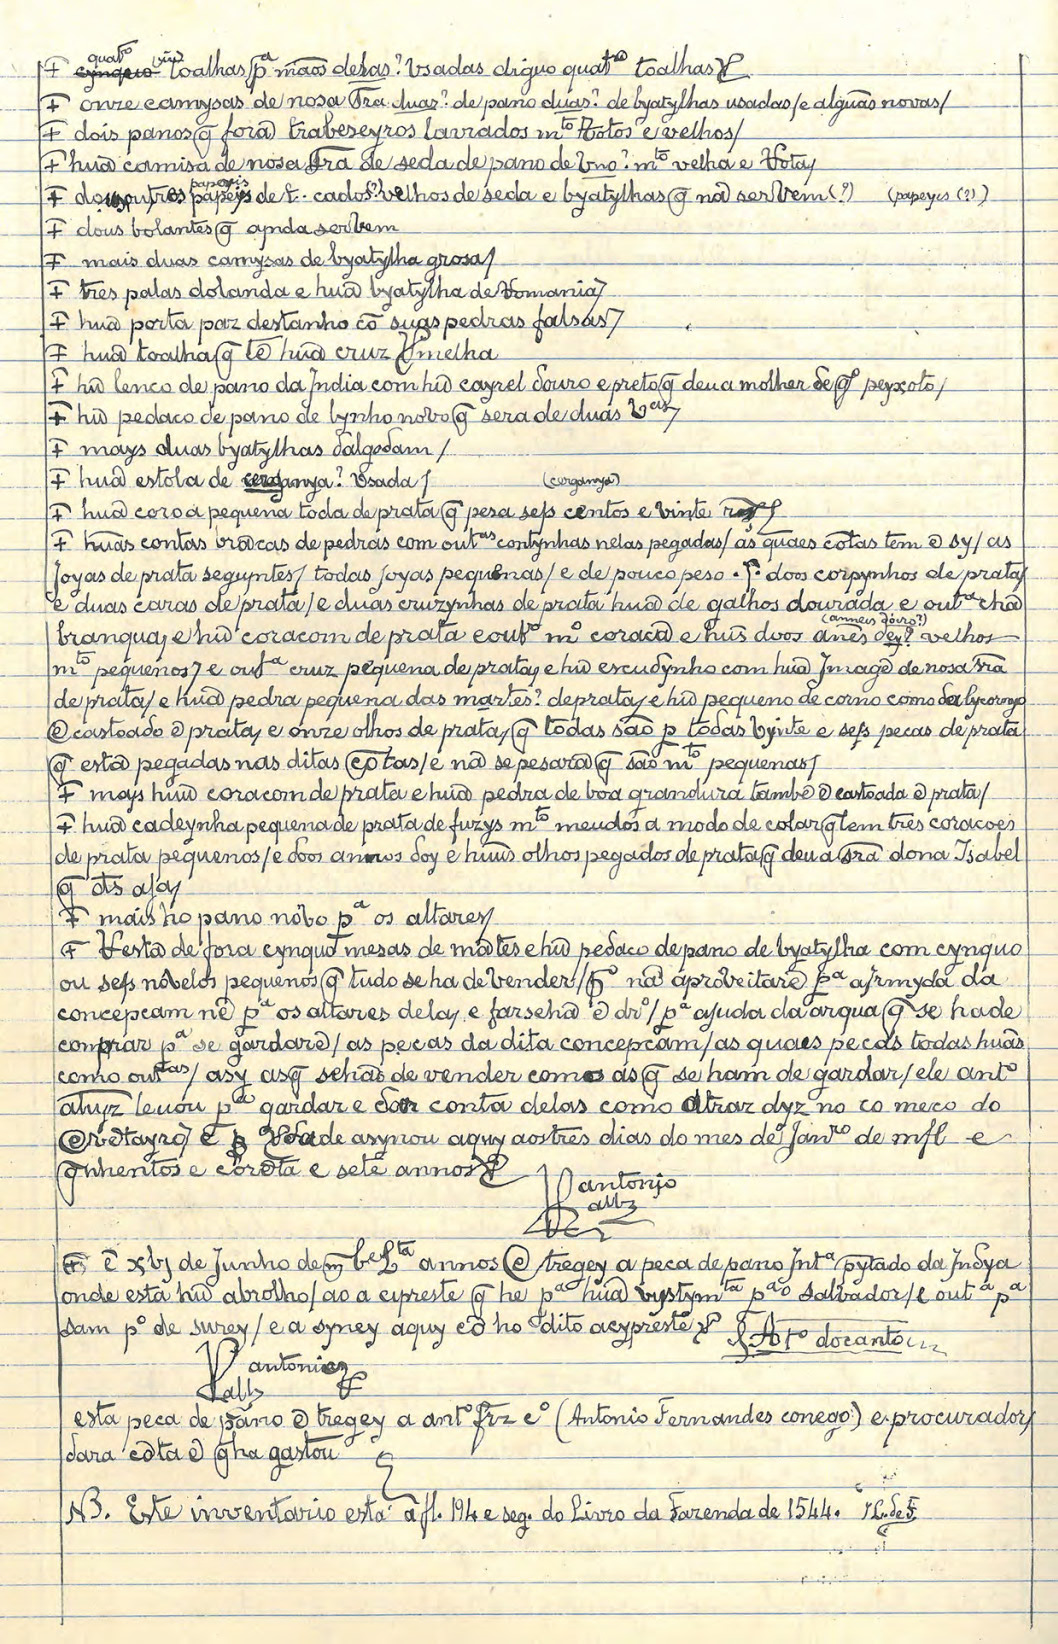 quatº
Ŧ toalhas/pª mãos delas? Vsadas diguo quatro toalhas
Ŧ onze camysas de nosa Sra duas? de pano duas? de byatylhas usadas/e algũas novas/
Ŧ dois panos q̃ forã trabeseyros lavrados mto Rotos e velhos/
Ŧ huã camisa de nosa Sra de seda de pano de Vno? mto velha e Rota/
papeis
Ŧ outros papeys de t.. cados? velhos de seda e byatylhas q̃ nã servem (?) (papeyes (?))
Ŧ dous bolantes q̃ aynda serbem
Ŧ mais duas camysas de byatylha grosa/
Ŧ tres palas dolanda e huã byatylha de Romania/
Ŧ huã porta paz destanho cõ suas pedras falsas/
Ŧ huã toalha q̃ tẽ huã cruz Vmelha
Ŧ hũ lenco de pano da India com hũ cayrel douro e preto q̃ deu a molher de gº peyxoto/
Ŧ hũ pedaco de pano de lynho nobo q̃ sera de duas bas/
Ŧ mays duas byatylhas dalgodam/
Ŧ huã estola de cerganya? Vsada/ (cerganya)
Ŧ huã coroa pequena toda de prata q̃ pesa seis centos e vinte rs/
Ŧ huãs contas brãcas de pedras com outas contynhas nelas pegadas/ as quaes cõtas tem ẽ sy/ as
Joyas de prata seguyntes/ todas joyas pequenas/ e de pouco peso .s. doos corpynhos de prata/
e duas caras de prata/ e duas cruzynhas de prata huã de galhos dourada e outª chã
(anneis d'oiro?)
branqua/ e hũ coracom de prata e outº mº coracã e hũs doos anes dey? velhos
mto pequenos/ e outª cruz pequena de prata/ e hũ escudynho com huã Imagẽ de nosa sra
de prata/ e huã pedra pequena das martes? de prata/ e hũ pequeno de corno como de lycornyo
ẽcastoado ẽ prata/ e onze olhos de prata/ q̃ todas são p todas vynte e seis pecas de prata
q̃ estã pegadas nas ditas cõtas/ e nã se pesarã q̃ são mto pequenas/
Ŧ mays huũ coracom de prata e huã pedra de boa grandura tambẽ ẽcastoada ẽ prata/
Ŧ huã cadeynha pequena de prata de fuzys mto meudos a modo de colar q̃ tem tres coracoes
de prata pequenos/ e doos annos doy e huũs olhos pegados de prata q̃ deu a sra dona Isabel
q̃ ds aja/
Ŧ mais ho pano nobo pª os altares/
Ŧ Resta de fora cynquo mesas de mãtes e hũ pedaco de pano de byatylha com cynquo
ou seis nobelos pequenos q̃ tudo se ha de vender/ nã aproveitarẽ pª a jrmyda da
concepcam nẽ pª os altares dela/ e farsehã ẽ drº/ pª ajuda da arqua q̃ se ha de
comprar pª se gardarẽ/ as pecas da dita concepcam/ as quaes pecas todas huãs
como outas/ asy as q̃ sehão de vender como as q̃ se ham de gardar/ ele antº
aluyz levou pª gardar e dar conta delas como atraz dyz no co meco do
ẽvẽtayro/ e p Vdade asynou aquy aos tres dias do mes de Janro de mfl e
qnhentos e corẽta e sete annos
antonio
allz
Ŧ ẽ xbj de Junho de m beLta annos ẽtregey a peca de pano Intª pytado da Indya
onde esta hũ abrolho/ ao acipreste q̃ he pª huã vystymta pª o Salvador/ e outª pª
sam pº de surey/ e asyney aquy cõ ho dito acypreste Atº docanto
antonio
allz
esta peca de pano ẽtregey a antº frz cº (Antonio Fernandes conego) e procurador/
dara cõta ẽ q̃ ha gastou
NB. Este inventario está a fl. 194 e seg. do Livro da Fazenda de 1544.